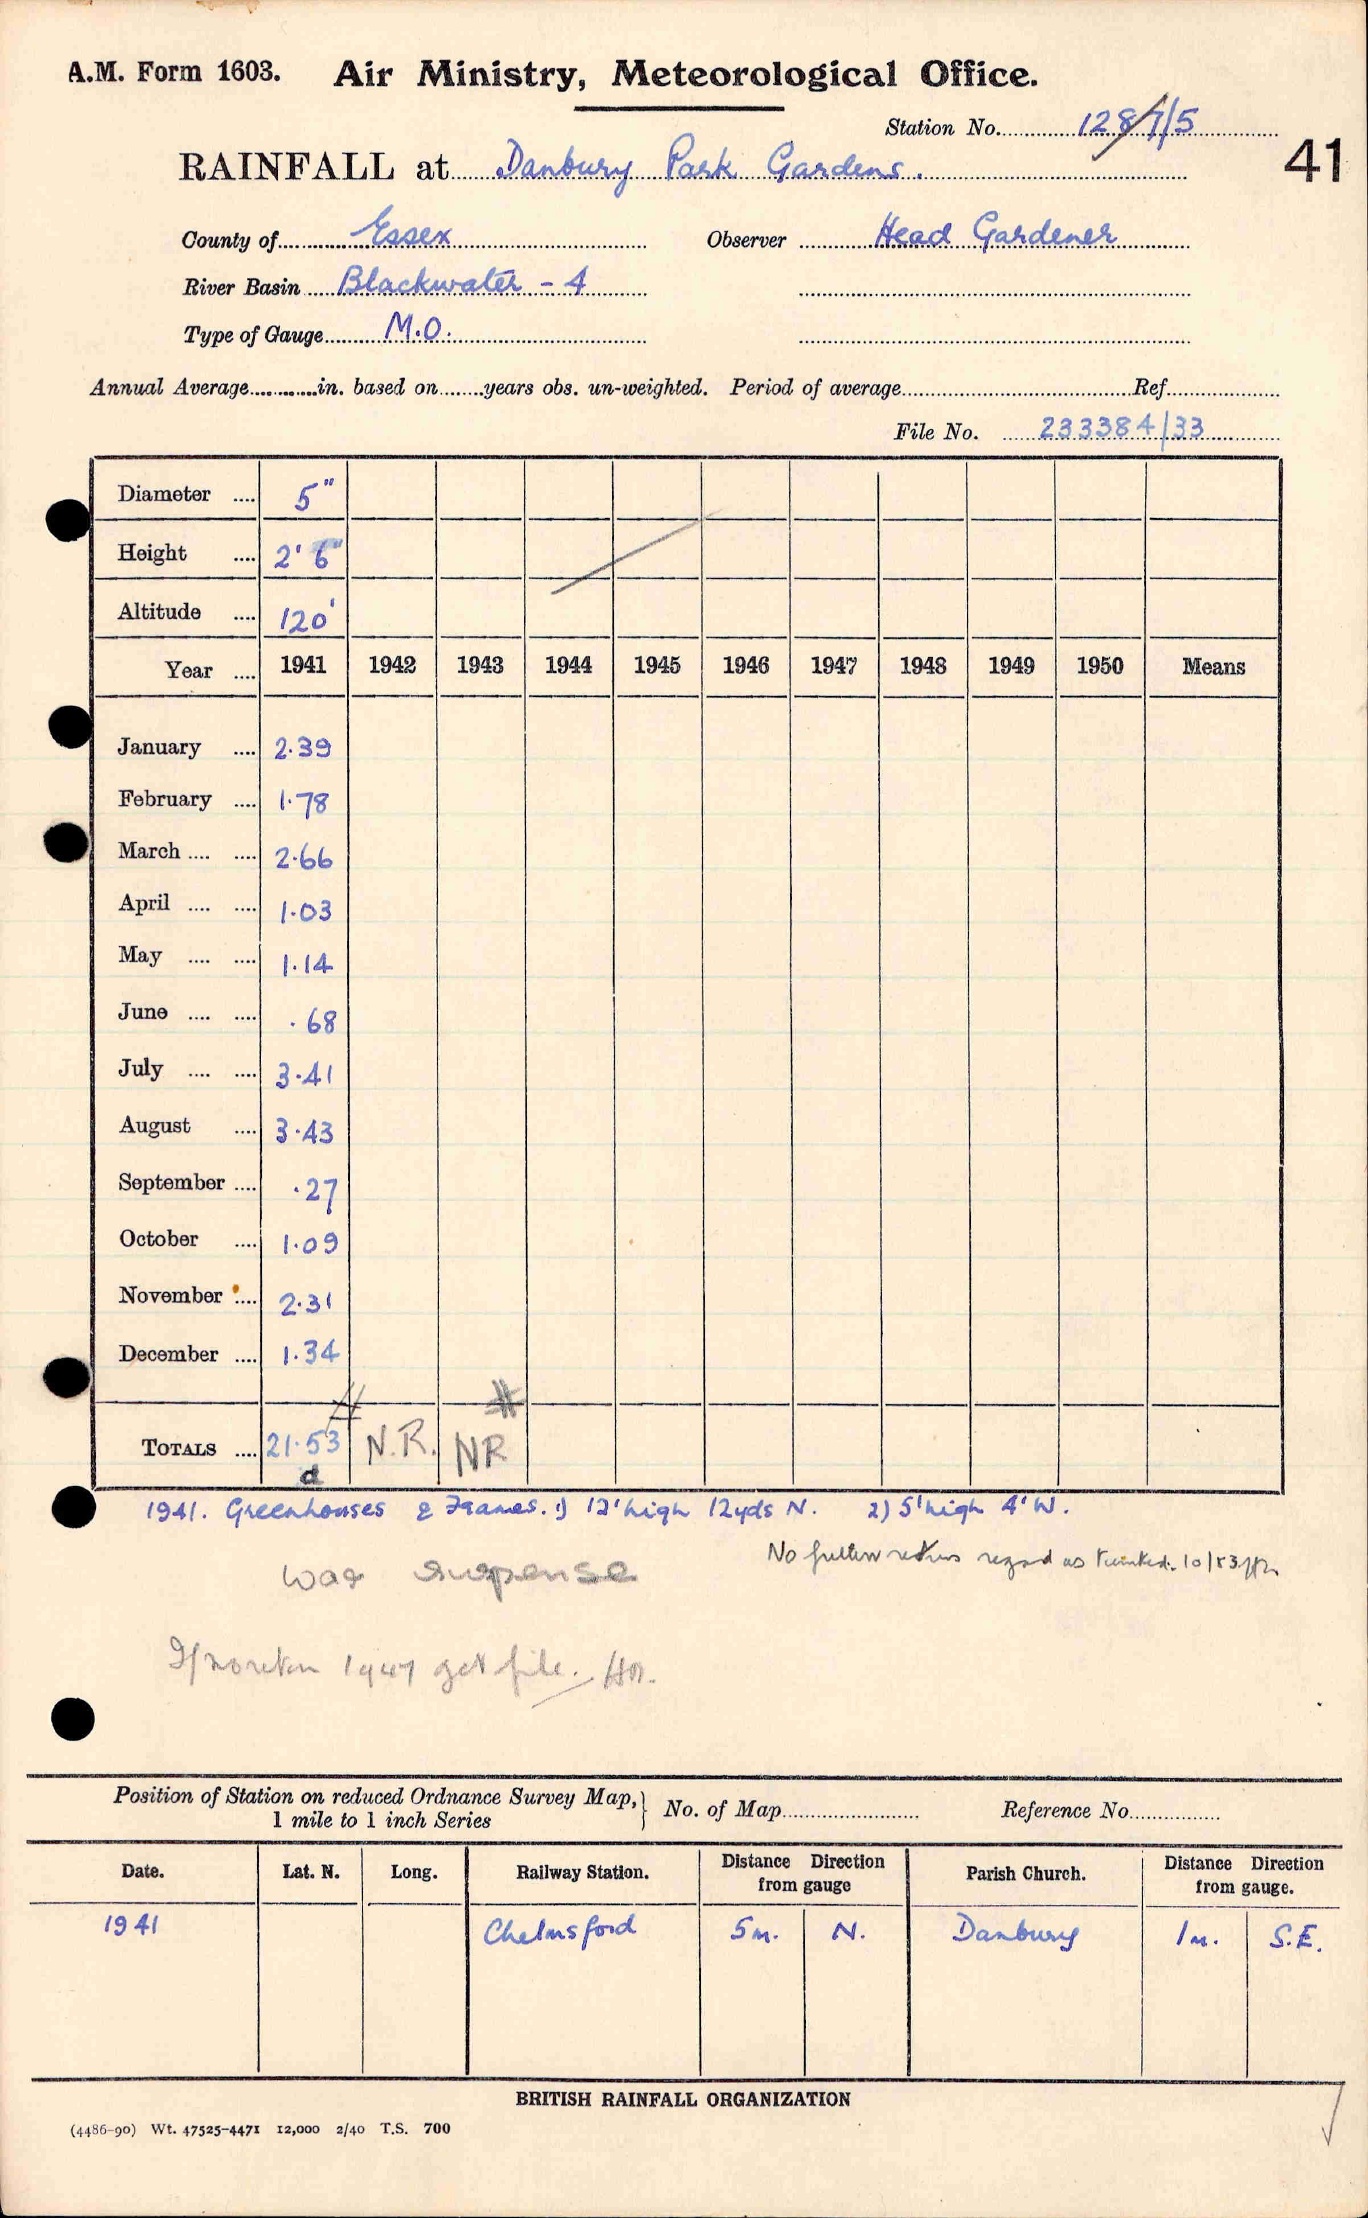 A.M. Form 1603. Air Ministry, Meteorological Office.
Station No. 1287/5
41
RAINFALL at Danbury Park Gardens.
County of Essex Observer Head Gardener
River Basin Blackwater - 4
Type of Gauge M.O.
Annual Average in. based on years obs. un-weighted. Period of average Ref.
File No. 233384/33
Diameter .... 5"
Height .... 2' 6"
Altitude .... 120'
Year .... 1941 1942 1943 1944 1945 1946 1947 1948 1949 1950 Means
January .... 2.39
February .... 1.78
March .... .... 2.66
April .... .... 1.03
May .... .... 1.14
June .... .... .68
July .... .... 3.41
August .... 3.43
September .... .27
October .... 1.09
November .... 2.31
December .... 1.34
TOTALS .... 21.53 N.R. NR
d
1941. Greenhouses & Frames. 1) 12' high 12yds N. 2) 5' high 4' W.
No further returns regard as 10/53
War suspense
If more than 1947 get file.
Position of Station on reduced Ordnance Survey Map, 1 mile to 1 inch Series } No. of Map Reference No.
Date. Lat. N. Long. Railway Station. Distance Direction from gauge Parish Church. Distance Direction from gauge.
1941 Chelmsford 5m. N. Danbury 1m. S.E.
BRITISH RAINFALL ORGANIZATION
(4486-90) Wt. 47525-4471 12,000 2/40 T.S. 700